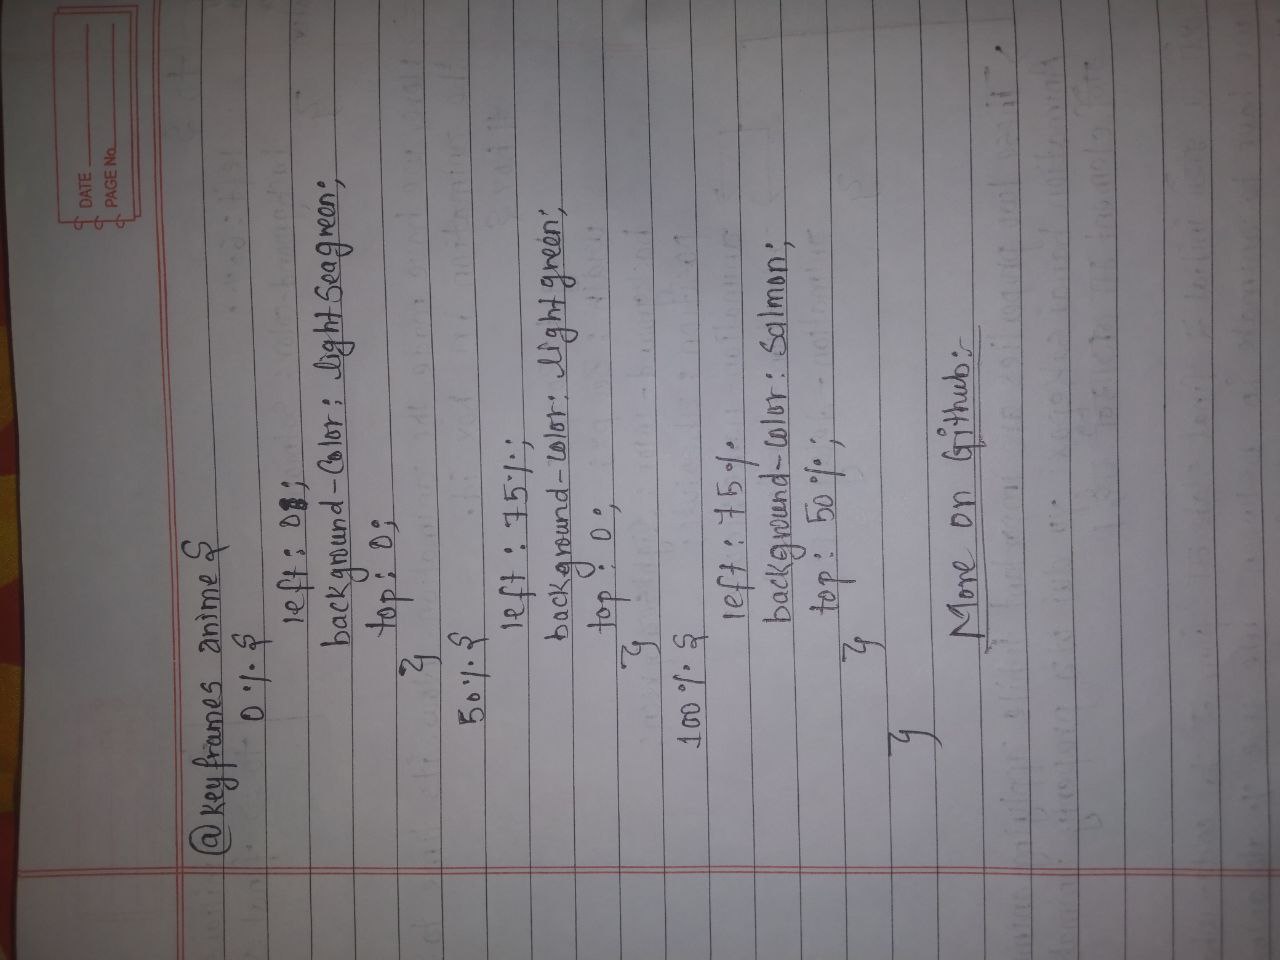 DATE
PAGE No.
@keyframes anime {
0%. {
left : 0;
background-color : lightseagreen;
top : 0;
}
50%. {
left : 75%;
background-color : lightgreen;
top : 0;
}
100%. {
left : 75%.
background-color : salmon;
top : 50%;
}
}
More on Github:-